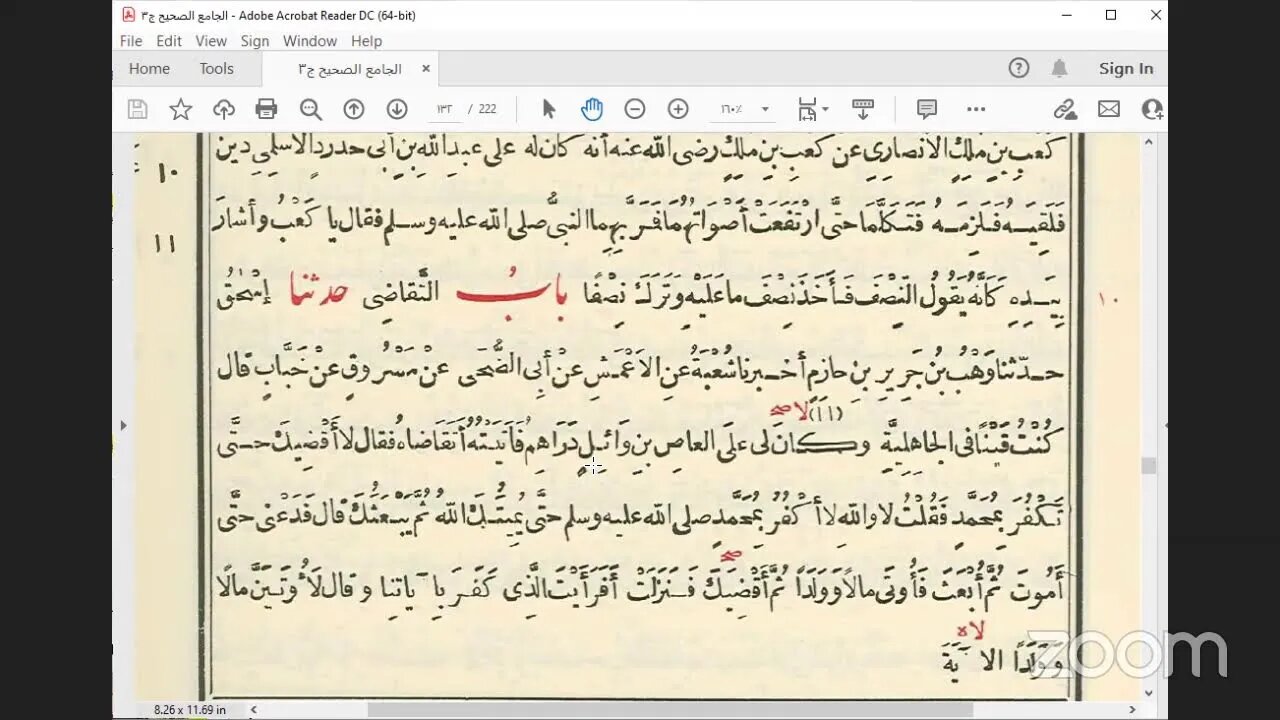 الجامع الصحيح ج٣ - Adobe Acrobat Reader DC (64-bit)
File Edit View Sign Window Help
Home Tools الجامع الصحيح ج٣ × Sign In
١٣٢ / 222 ١٦٠٪
كَعْبِ بنِ مٰلِكٍ الأنْصَارِيِّ عن كَعْبِ بنِ مٰلِكٍ رضى الله عنه أنه كان له على عبدِ اللهِ بنِ أبى حدردٍ الأسلمى دين
١٠
فَلَقِيَهُ فَلَزِمَهُ فَتَكَلَّمَا حتَّى ارْتَفَعَتْ أصْوَاتُهُمَا فَمَرَّ بِهِما النبىُّ صلى الله عليه وسلم فقال يا كَعْبُ وأشارَ
١١
بِيَدِهِ كأنَّهُ يقولُ النِّصْفَ فأخَذَ نِصْفَ ما عَلَيْهِ وتَرَكَ نِصْفًا بابُ التَّقاضِى حدثنا إسْحٰقُ
١٠
حدّثنا وَهْبُ بنُ جَرِيرِ بنِ حازِمٍ أخبرنا شُعْبَةُ عنِ الأعْمَشِ عنْ أبِى الضُّحَى عنْ مَسْرُوقٍ عنْ خَبَّابٍ قال
(١١) لا صح
كُنْتُ قَيْنًا فى الجاهِلِيَّةِ وكانَ لى علَى العاصِ بنِ وَائِلٍ دَرَاهِمُ فَأتَيْتُهُ أتَقَاضَاهُ فقال لا أقْضِيكَ حتَّى
تَكْفُرَ بِمُحَمَّدٍ فَقُلْتُ لا واللهِ لا أكْفُرُ بِمُحَمَّدٍ صلى الله عليه وسلم حتَّى يُمِيتَكَ اللهُ ثُمَّ يَبْعَثَكَ قال فَدَعْنى حتَّى
صح
أَمُوتَ ثُمَّ أُبْعَثَ فَأُوتَى مالًا وَوَلَدًا ثُمَّ أقْضِيَكَ فَنَزَلَتْ أَفَرَأَيْتَ الَّذِى كَفَرَ بِآيَاتِنا وقال لَأُوتَيَنَّ مالًا
لا ه
وَوَلَدًا الآيَةَ
zoom
8.26 x 11.69 in